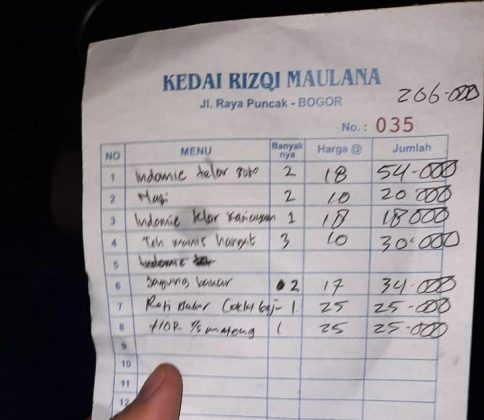 KEDAI RIZQI MAULANA
Jl. Raya Puncak - BOGOR
206.000
No.: 035
NO MENU Banyak nya Harga @ Jumlah
1 Indomie telor soto 2 18 54.000
2 Nasi 2 10 20.000
3 Indomie telor 1 18 18000
4 Teh manis hangat 3 10 30.000
5 Indomie
6 Jagung bakar 2 17 34.000
7 Roti Bakar 1 25 25.000
8 1/2 mateng 1 25 25.000
9
10
11
12